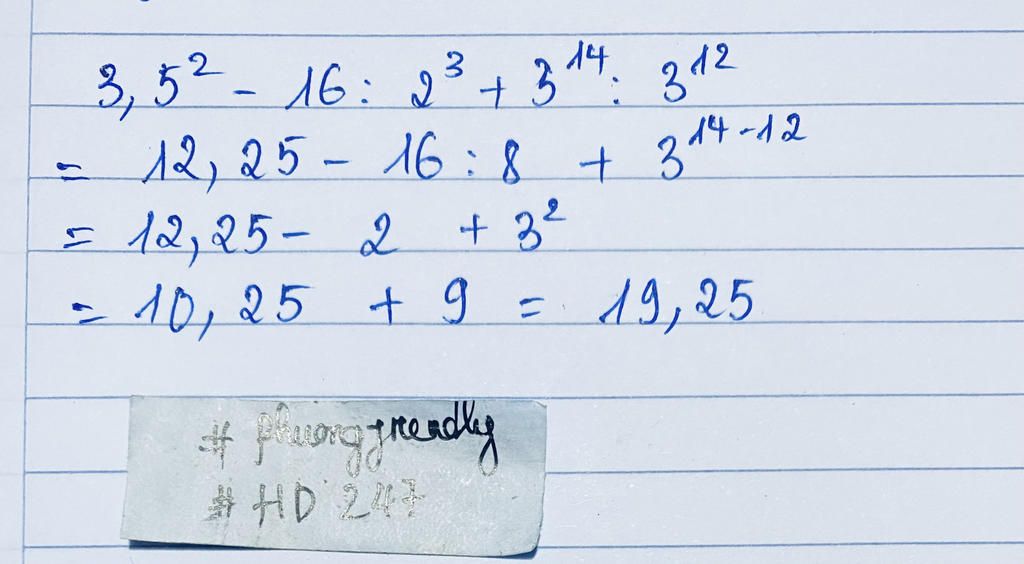 3,5² - 16 : 2³ + 3¹⁴ : 3¹²
= 12,25 - 16 : 8 + 3¹⁴⁻¹²
= 12,25 - 2 + 3²
= 10,25 + 9 = 19,25
# phuongfriendly
# HD 247